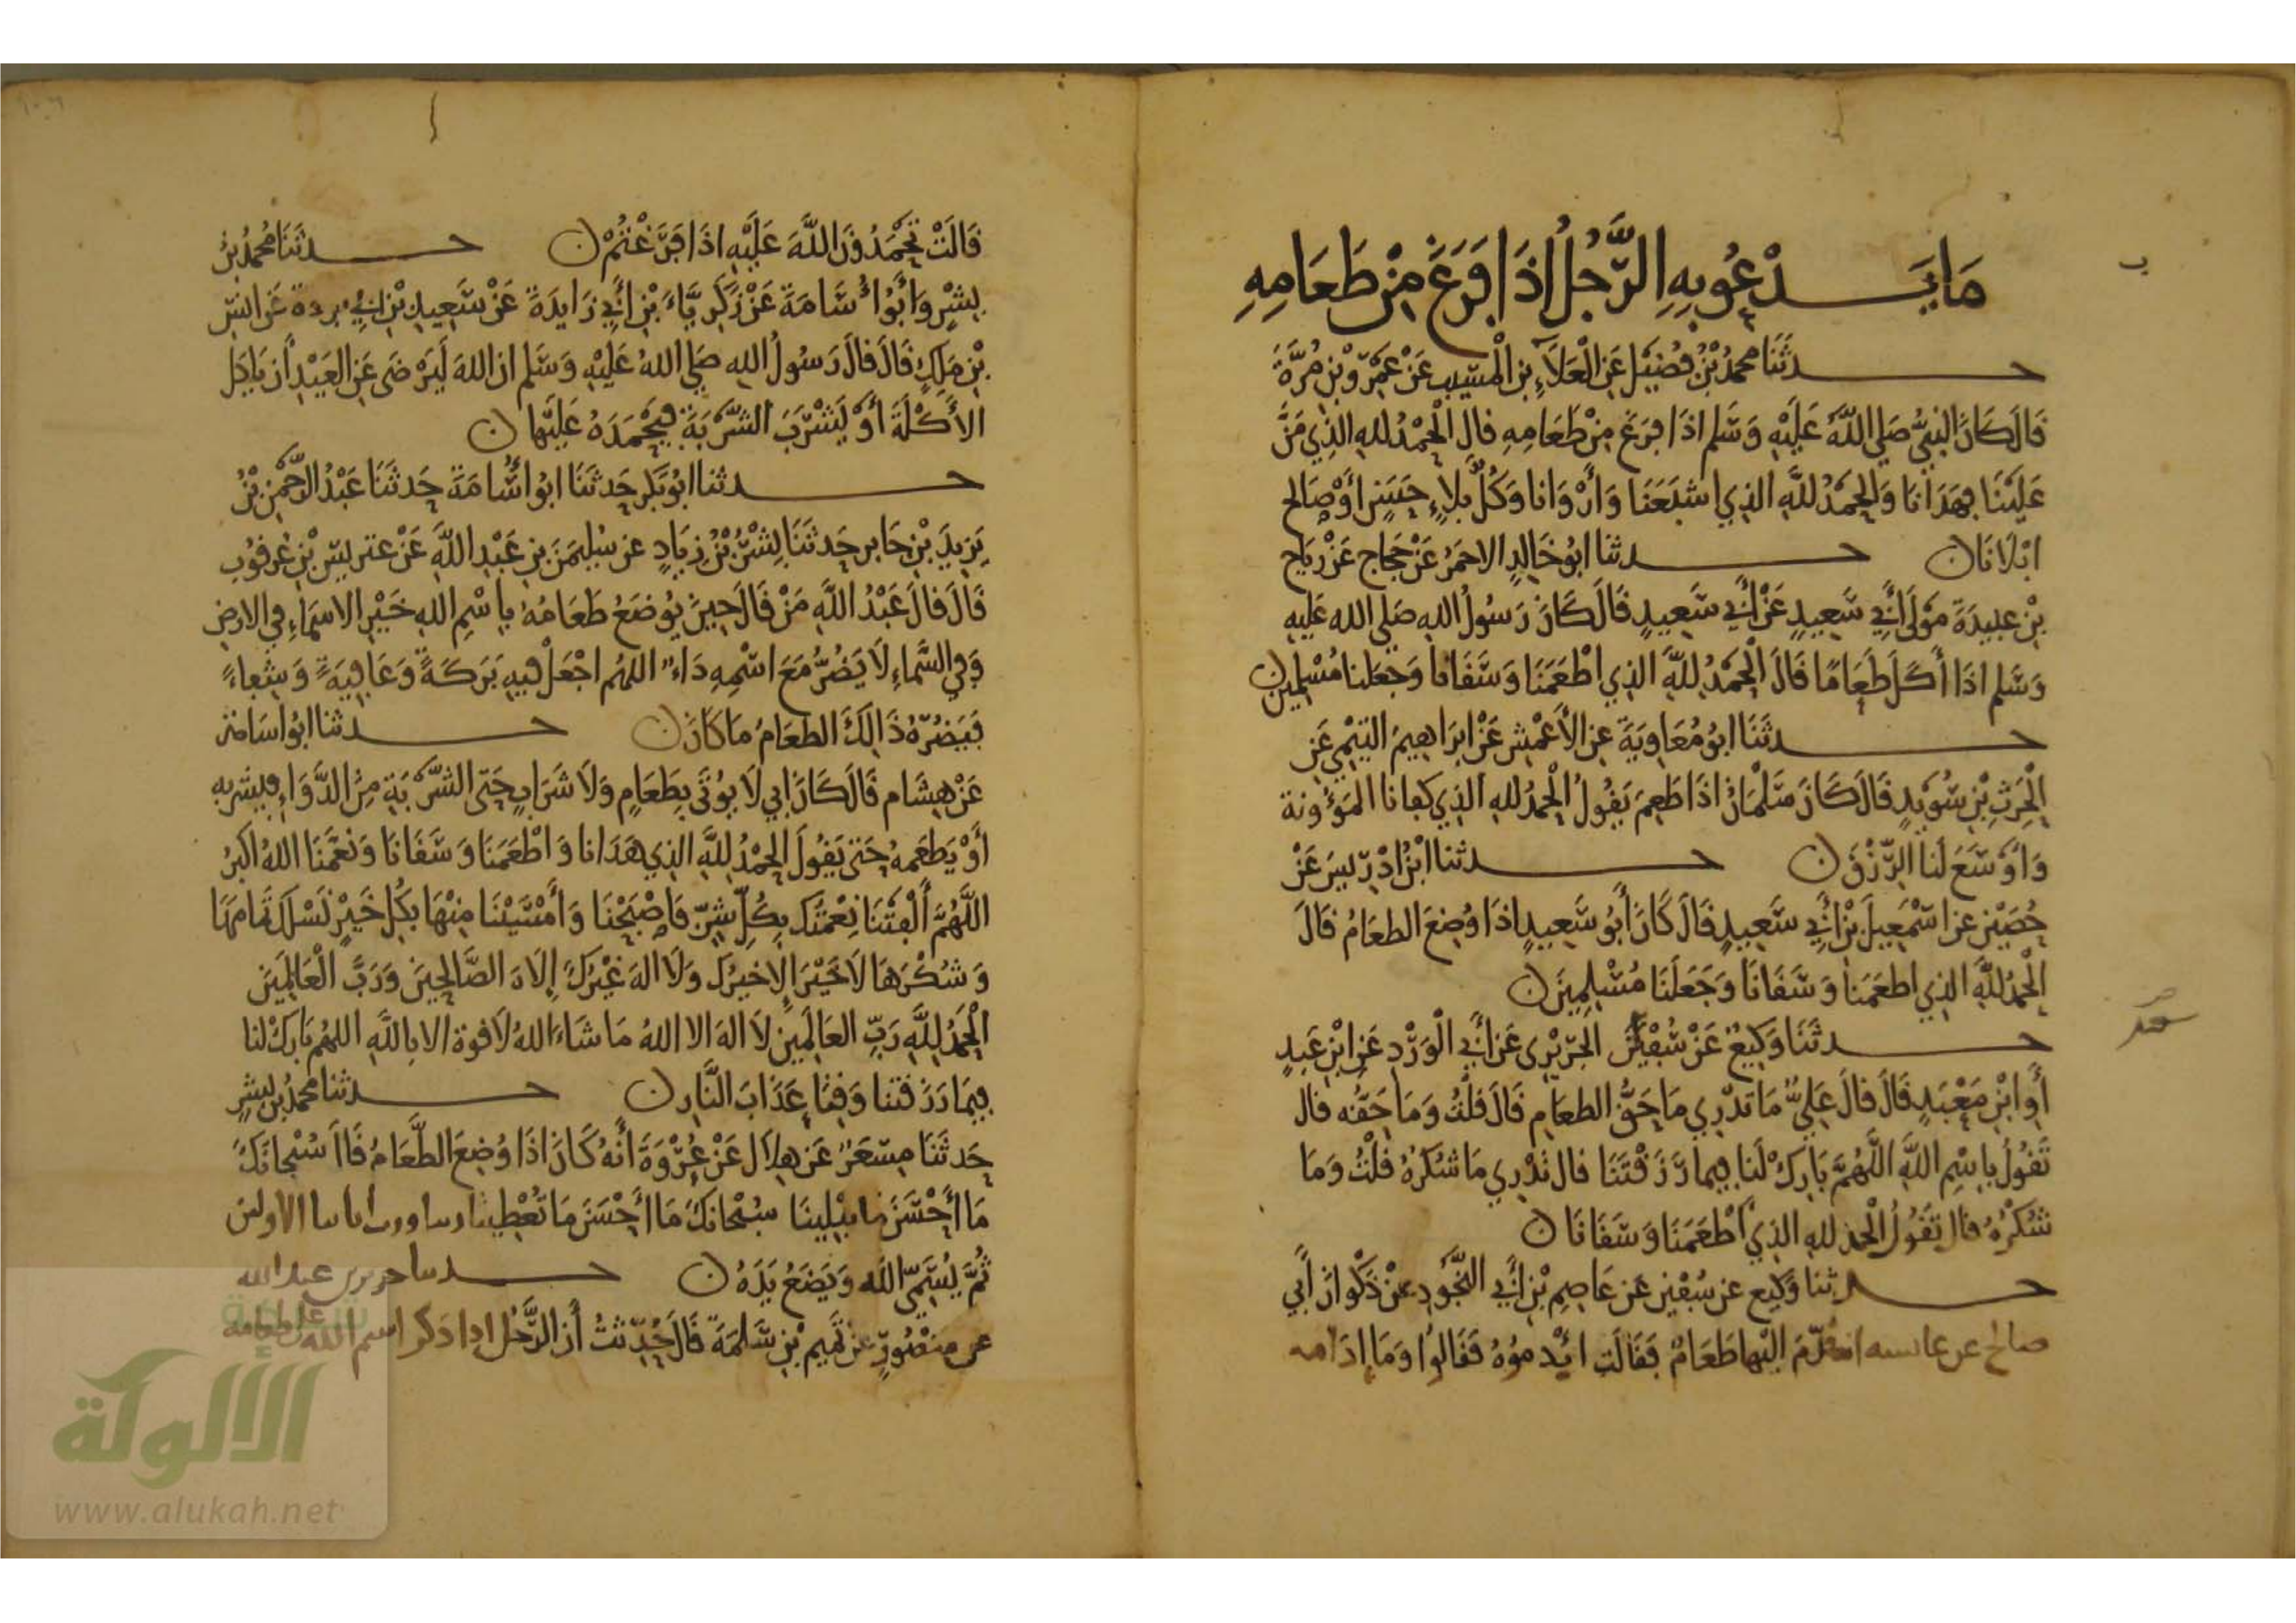 مَا يَدْعُو بِهِ الرَّجُلُ اذَا فَرَغَ مِنْ طَعَامِهِ
حدثَنَا محمدُ بْنُ فُضَيْل عَنِ الْعَلَاءِ بنِ الْمسَيبِ عَنْ عَمْرو بْنِ مُرَّةَ
قَالَ كَانَ النبيُّ صَلي اللَّهُ عَلَيْهِ وَسَلم اذَا فرَغ مِنْ طَعَامِهِ قال الْحَمْدُ للهِ الذِي مَنَّ
عَلَيْنَا فهَدَانَا وَالحَمْدُ للَّهِ الذِي اشبَعَنَا وَأَرْوَانا وَكُلّ بلاءٍ حَسَنٍ أَوْ صَالح
ابْلَانَا ن حدثنا ابُو خَالِدٍ الاحمَرُ عَنْ حَجَاج عَنْ رِيَاح
بْنِ عبيدَةَ مَوْلَى أَبِي سَعِيدٍ عَنْ أَبِي سَعِيدٍ قَالَ كَانَ رَسُولُ اللهِ صَلي الله عَليه
وَسَلم اذَا أَكَلَ طَعَامًا قَالَ الْحَمْدُ للَّهِ الذِي اطْعَمَنَا وَسَقَانَا وَجَعَلنا مُسْلِمين ن
حدثَنَا ابُو مُعَاوِيَةَ عنِ الأَعْمَشِ عَنْ ابرَاهِيمَ التيْمِي عَنِ
الْحَرِثِ بْنِ سُوَيْدٍ قَالَ كَانَ سَلْمَانُ اذَا طَعِمَ يَقُولُ الْحَمْدُ للهِ الذِي كفانا المَؤُونة
وَاوْسَعَ لَنا الرِّزْقَ ن حدثنا ابْنُ ادْرِيسَ عَنْ
حُصَيْنٍ عن اسْمَعِيلَ بْنِ أَبِي سَعِيدٍ قَالَ كَانَ أَبُو سَعِيدٍ اذَا وُضِعَ الطعَامُ قَالَ
الْحَمْدُ للَّهِ الذِي اطعَمَنا وَسَقَانَا وَجَعَلَنَا مُسْلِمِينَ ن
حدثَنَا وَكِيعٌ عَنْ سُفْيَن الجُرَيْرِي عَنْ أَبِي الْوَرْدِ عَنِ ابْنِ عَبدٍ
أَوِ ابْنِ مَعْبَدٍ قَالَ قالَ عَلِيٌّ مَا تدْرِي مَا حَقُّ الطعَامِ قَالَ قلْتُ وَمَا حَقُّه قال
تَقُولُ بِاسْمِ اللَّهِ اللَّهُمَّ بَارِكْ لَنَا فِيما رَزَقْتَنَا قال تَدْرِي مَا شكرُهُ قُلْتُ وَمَا
شُكْرُهُ قال تَقُولُ الْحمد للهِ الذِي أَطْعَمَنَا وَسَقَانَا ن
حدثنا وَكِيع عن سُفْيَن عَن عَاصِمِ بْنِ أَبِي النَّجُودِ عنْ ذَكْوَانَ أَبِي
صالح عن عايسه انه قُدِّمَ اليْها طَعَامٌ فَقَالَت ائْدِمُوُهُ فَقَالُوا وَمَا إدَامه
قَالَتْ تَحْمَدُونَ اللَّهَ عَلَيْهِ اذَا فَرَغْتُمْ ن حدثَنَا مُحمدُ بنُ
بِشْرٍ وَأَبُو أُسَامَةَ عَنْ زَكَرِيَّاءَ بْنِ أَبِي زَايدَةَ عَنْ سَعِيدِ بْنِ ابِي بردة عَن انسِ
بْنِ مَلِكٍ قَالَ قالَ رَسُولُ اللهِ صَلي اللهُ عَلَيْهِ وَسَلم ان اللهَ لَيَرْضَى عَنِ العَبْدِ أن يَاكلَ
الأَكْلَةَ أَوْ يَشْرَبَ الشَّرْبَةَ فيَحْمَدَهُ عَلَيْها ن
حدثنا ابُو بَكر حَدثَنَا ابُو أُسَامَة حَدثَنَا عَبْدُ الرَّحْمَنِ بْنُ
يَزِيدَ بْنِ جَابر حَدثَنَا بِشْرُ بْنُ زِيَادٍ عن سُلَيمَنَ بنِ عَبْدِ اللَّهِ عَنْ عتريسِ بْنِ عُرْقُوبِ
قَالَ قالَ عَبْدُ اللَّهِ مَنْ قَالَ حِينَ يُوضَعُ طَعَامُهُ بِاسْمِ اللهِ خَيْرِ الاسمَاءِ فِي الارضِ
وَفِي السَّمَاءِ لَا يَضُرُّ مَعَ اسْمِهِ دَاءٌ اللهُم اجْعَلْ فيهِ بَرَكَةً وَعَافِيَةً وَشِفاءً
فَيَضُرّهُ ذَالِكَ الطعَامُ مَا كَانَ ن حدثنا ابُو أُسَامة
عَنْ هِشَام قَالَ كَانَ أبِي لَا يُوتَى بِطَعَامٍ وَلَا شَرَابٍ حَتى الشَّرْبَةِ مِنْ الدَّوَاءِ فيشرَبه
أَوْ يَطعَمهُ حَتى يَقُولَ الحَمْدُ لِلَّهِ الذِي هَدَانا وَاطْعَمَنَا وَسَقَانَا وَنَعَّمَنَا اللهُ اكبرُ
اللَّهُمَّ أَلْفَتْنَا نِعْمَتُك بِكُلِّ شَرٍّ فَاصْبَحْنَا وَأَمْسَيْنَا مِنْهَا بِكُلِ خَيْرٍ نَسْلك تَمَامَهَا
وَشُكْرَهَا لَا خَيْرَ إِلا خيرُكَ وَلَا الهَ غَيْرُكَ إِلَاهَ الصَّالِحِينَ وَرَبَّ الْعَالَمِينَ
الْحَمْدُ لِلَّهِ رَبِّ العَالَمِينَ لَا الهَ الا اللهُ مَا شَاءَ اللهُ لَا قوة الا بِاللَّهِ اللهُم بَارِكْ لنا
فِيمَا رَزَقتنا وَقِنَا عَذَابَ النَّارِ ن حدثنا محمدُ بن بِشرٍ
حَدثَنَا مِسْعَرٌ عَن هِلَال عَنْ عُرْوَةَ أَنَّهُ كَانَ اذَا وُضِعَ الطَّعَامُ قَالَ سُبْحانَكَ
مَا أَحْسَنَ مَا تبْلِينَا سُبْحانَكَ مَا أَحْسَنَ مَا تُعْطِينا ربنا ورب أبأىنا الاولىن
ثُمَّ يُسَمِّي اللَّه وَيَضَعُ يَدَهُ ن حدىنا جرير بن عبد الله
عن مَنْصُورٍ عَنْ تَمِيمِ بْنِ سَلَمَةَ قَالَ حُدِّثتُ أَنَّ الرَّجُلَ إذا ذكر اسم الله على طعامه
الألوكة
www.alukah.net